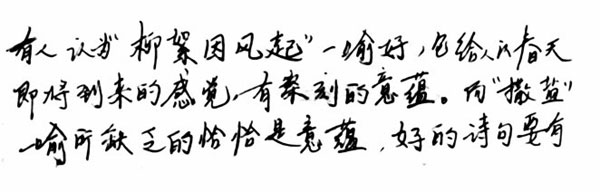 有人认为"柳絮因风起"一喻好,它给人以春天
即将到来的感觉,有深刻的意蕴。而"撒盐"
一喻所缺乏的恰恰是意蕴,好的诗句要有